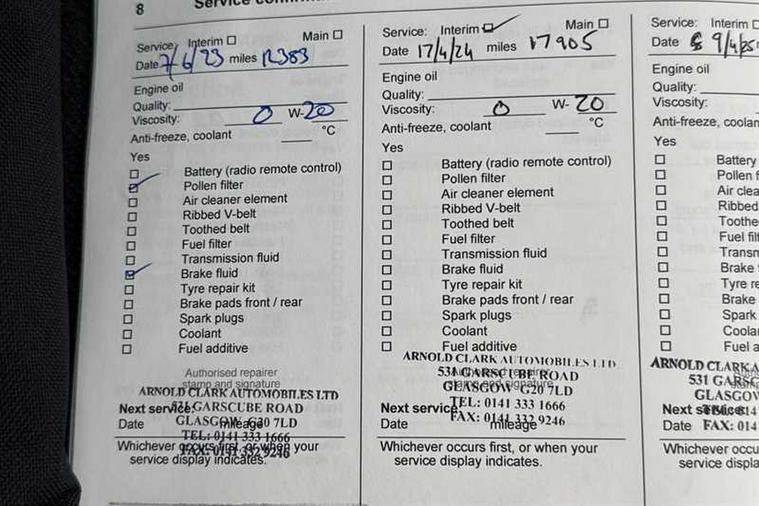 8
Service confirm
Service: Interim Main
Date 7/6/23 miles 12383
Engine oil
Quality:
Viscosity: 0 W-20
Anti-freeze, coolant °C
Yes
Battery (radio remote control)
Pollen filter
Air cleaner element
Ribbed V-belt
Toothed belt
Fuel filter
Transmission fluid
Brake fluid
Tyre repair kit
Brake pads front / rear
Spark plugs
Coolant
Fuel additive
Authorised repairer
stamp and signature
ARNOLD CLARK AUTOMOBILES LTD
531 GARSCUBE ROAD
GLASGOW G20 7LD
TEL: 0141 333 1666
FAX: 0141 332 9246
Next service:
Date mileage
Whichever occurs first, or when your
service display indicates.
Service: Interim Main
Date 17/4/24 miles 17905
Engine oil
Quality:
Viscosity: 0 W-20
Anti-freeze, coolant °C
Yes
Battery (radio remote control)
Pollen filter
Air cleaner element
Ribbed V-belt
Toothed belt
Fuel filter
Transmission fluid
Brake fluid
Tyre repair kit
Brake pads front / rear
Spark plugs
Coolant
Fuel additive
Authorised repairer
stamp and signature
ARNOLD CLARK AUTOMOBILES LTD
531 GARSCUBE ROAD
GLASGOW G20 7LD
TEL: 0141 333 1666
FAX: 0141 332 9246
Next service:
Date mileage
Whichever occurs first, or when your
service display indicates.
Service: Interim
Date 9/4/25
Engine oil
Quality:
Viscosity:
Anti-freeze, coolan
Yes
Battery
Pollen f
Air clea
Ribbed
Toothe
Fuel filt
Transm
Brake
Tyre re
Brake
Spark
Coola
Fuel a
ARNOLD CLARK A
531 GARSC
GLASGOW
TEL: 014
FAX: 014
Next service:
Date
Whichever occu
service displa